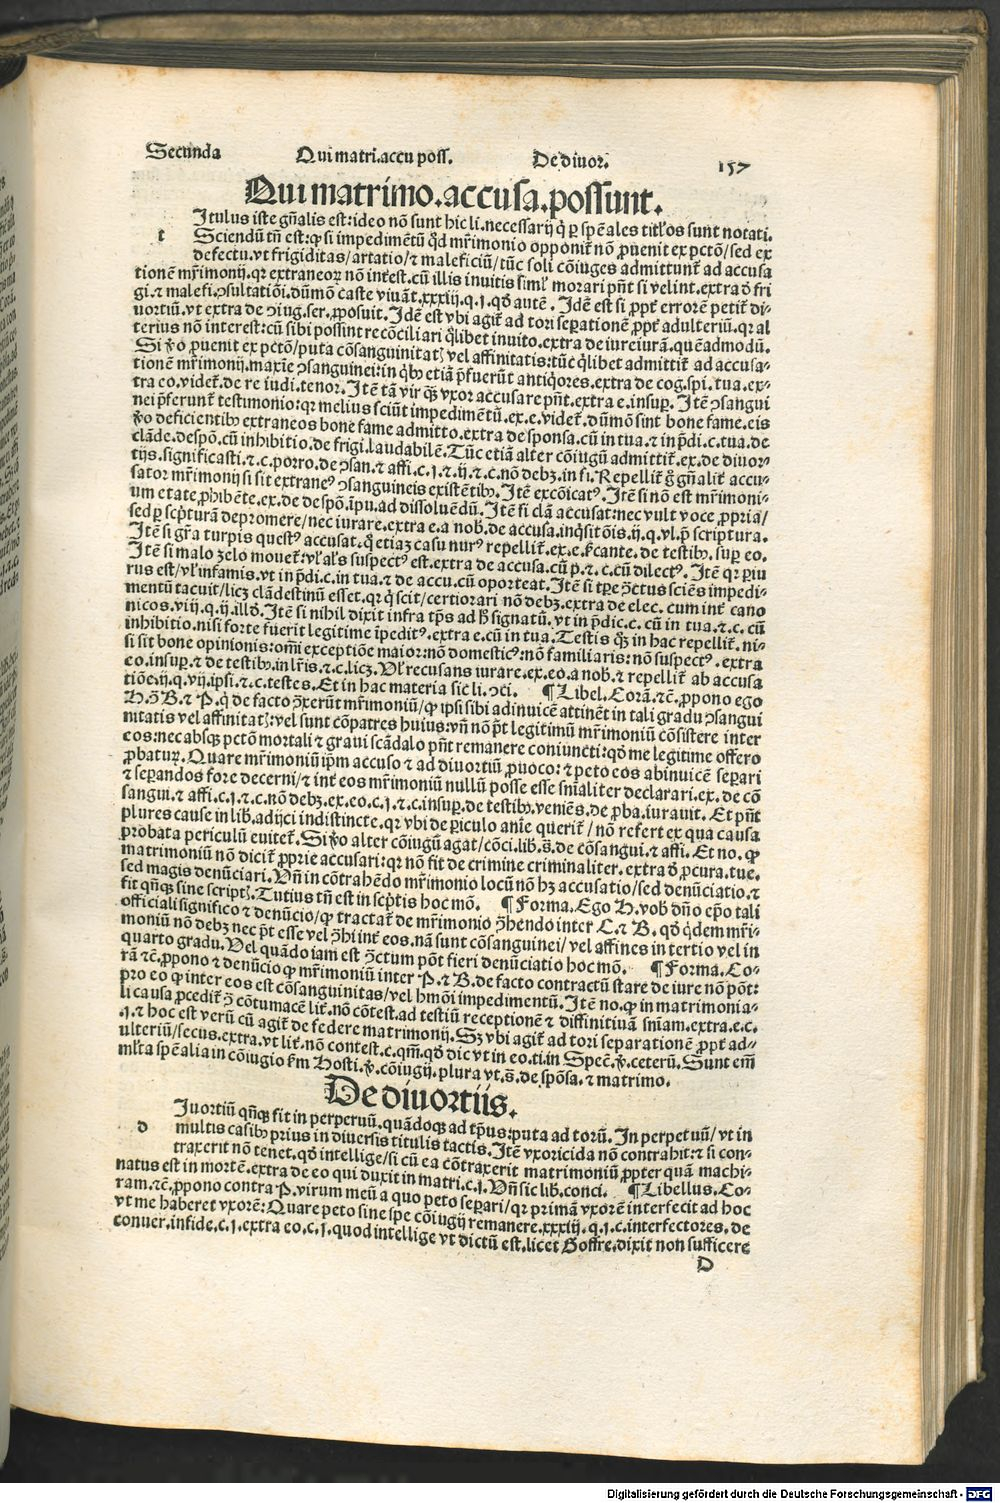 Secunda Qui matri.accu poss. De diuor. 157
Qui matrimo.accusa.possunt.
Itulus iste gñalis est:ideo nō sunt hic li.necessarij q̇ ꝑ spēales titl'os sunt notati.
t Sciendū tñ est:ꝙ si impedimētū q̇d mr̄imonio opponit̄ nō ꝓuenit ex pctō/sed ex
defectu.vt frigiditas/artatio/⁊ maleficiū/tūc soli cōiuges admittunt̄ ad accusa
tionē mr̄imonij.qr extraneoꝝ nō int̄est.cū illis inuitis siml' morari pn̄t si velint.extra ď fri
gi.⁊ malefi.ↄsultatiōi.dūmō caste viuāt.xxxiij.q.j.qď autē. Idē est si ꝓpt̄ errorē petit̄ di-
uortiū.vt extra de ↄiug.ser.ꝓposuit. Idē est vbi agit̄ ad tori seꝑationē ꝓpt̄ adulteriū.qr al
terius nō interest:cū sibi possint recōciliari q̇libet inuito.extra de iureiurā.quēadmodū.
Si v̇o ꝓuenit ex pctō/puta cōsanguinitatꝭ vel affinitatis:tūc q̇libet admittit̄ ad accusa-
tionē mr̄imonij.maxīe ↄsanguinei:in q̇bꝫ etiā p̄fuerūt antiq̇ores.extra de cog.spi.tua.ex-
tra eo.videt̄.de re iudi.tenor. Itē tā vir qꝫ vxor accusare pn̄t.extra e.insuꝑ. Itē ↄsangui
nei p̄ferunt̄ testimonio:qr melius sciūt impedimētū.ex.e.videt̄.dūmō sint bone fame.eis
v̇o deficientibꝫ extraneos bone fame admitto.extra de sponsa.cū in tua.⁊ in p̄di.c.tua.de
clāde.despō.cū inhibitio.de frigi.laudabilē. Tūc etiā alter cōiugū admittit̄.ex.de diuor-
tijs.significasti.⁊.c.porro.de ↄsan.⁊ affi.c.j.⁊.ij.⁊.c.nō debꝫ.in fi. Repellit̄ ġ gñalit̄ accu-
sator mr̄imonij si sit extraneꝰ ↄsanguineis existētibꝫ. Itē excōicatꝰ. Itē si nō est mr̄imoni-
um etate ꝓhibēte.ex.de despō.īpu.ad dissoluēdū. Itē si clā accusat:nec vult voce ꝓpria/
sed ꝑ scp̄turā depromere/nec iurare.extra e.a nob̄.de accusa.inq̇sitōis.ij.q.vl.ꝑ scriptura.
Itē si gr̄a turpis questꝰ accusat.q̇ etiaꝫ casu nurꝰ repellit̄.ex.e.ẜcante.de testibꝫ.suꝑ eo.
Itē si malo ꝫelo mouet̄:vl' al's suspectꝰ est.extra de accusa.cū p̄.⁊.c.cū dilectꝰ. Itē qr ꝑiu
rus est/vl' infamis.vt in p̄di.c.in tua.⁊ de accu.cū oporteat. Itē si tꝑe ↄ̄ctus sciēs impedi-
mentū tacuit/licꝫ clādestinū esset.qr q̇ scit/certiorari nō debꝫ.extra de elec.cum int̄ cano
nicos.viij.q.ij.illď. Itē si nihil dixit infra tp̄s ad ħ signatū.vt in p̄dic.c.cū in tua.⁊.c.cū
inhibitio.nisi forte fuerit legitime īpeditꝰ.extra e.cū in tua. Testis qꝫ in hac repellit̄.ni-
si sit bone opinionis:om̄i exceptiōe maior:nō domesticꝰ:nō familiaris:nō suspectꝰ.extra
eo.insuꝑ.⁊ de testibꝫ.in lr̄is.⁊.c.licꝫ. Vl' recusans iurare.ex.eo.a nob̄.⁊ repellit̄ ab accusa
tiōe.ij.q.vij.ipsi.⁊.c.testes. Et in hac materia sic li.ↄci. ¶Libel. Corā.⁊c̄.ꝓpono ego
H. ↄ̄ B.⁊ P.q̇ de facto ↄ̄xerūt mr̄imoniū/ꝙ ipsi sibi adinuicē attinēt in tali gradu ↄsangui
nitatis vel affinitatꝭ:vel sunt cōpatres huius:vn̄ nō p̄t legitimū mr̄imoniū cōsistere inter
eos:nec absqꝫ pctō mortali ⁊ graui scādalo pn̄t remanere coniuncti:qď me legitime offero
ꝓbaturꝫ. Quare mr̄imoniū ip̄m accuso ⁊ ad diuortiū ꝓuoco:⁊ peto eos abinuicē seꝑari
⁊ seꝑandos fore decerni/⁊ int̄ eos mr̄imoniū nullū posse esse sn̄ialiter declarari.ex.de cō
sangui.⁊ affi.c.j.⁊.c.nō debꝫ.ex.eo.c.j.⁊.c.insuꝑ.de testibꝫ.veniēs.de ꝓba.iurauit. Et pn̄t
plures cause in lib̄.adijci indistincte.qr vbi de ꝑiculo anīe querit̄/nō refert ex qua causa
probata periculū euitet̄. Si v̇o alter cōiugū agat/cōci.lib̄.s̄.de cōsangui.⁊ affi. Et no.ꝙ
matrimoniū nō dicit̄ ꝓprie accusari:qr nō fit de crimine criminaliter.extra ď ꝓcura.tue.
sed magis denūciari. Vn̄ in cōtrahēdo mr̄imonio locū nō hꝫ accusatio/sed denūciatio.⁊
fit qn̄qꝫ sine scriptꝭ. Tutius tn̄ est in scp̄tis hoc mō. ¶Forma. Ego H.vob̄ dn̄o ep̄o tali
officiali significo ⁊ denūcio/ꝙ tractat̄ de mr̄imonio ↄ̄hendo inter C.⁊ B. qď q̇dem mr̄i-
moniū nō debꝫ nec p̄t esse vel ↄ̄hi int̄ eos.nā sunt cōsanguinei/vel affines in tertio vel in
quarto gradu. Vel quādo iam est ↄ̄ctum pōt fieri denūciatio hoc mō. ¶Forma. Co-
rā ⁊c̄.ꝓpono ⁊ denūcio ꝙ mr̄imoniū inter P.⁊ B.de facto contractū stare de iure nō pōt:
pro eo ꝙ inter eos est cōsanguinitas/vel hmōi impedimentū. Itē no.ꝙ in matrimonia-
li causa ꝓcedit̄ ↄ̄ cōtumacē lit̄.nō cōtest.ad testiū receptionē ⁊ diffinitiuā sn̄iam.extra.e.c.
.j.⁊ hoc est verū cū agit̄ de federe matrimonij. Sꝫ vbi agit̄ ad tori separationē ꝓpt̄ ad-
ulteriū/secus.extra.vt lit̄.nō contest.c.qm̄.qď dic vt in eo.ti.in Specľ.v̇.ceterū. Sunt em̄
ml'ta spēalia in cōiugio ẜm Hosti.v̇.cōiugij.plura vt.s̄.de spōsa.⁊ matrimo.
De diuortiis.
Iuortiū qn̄qꝫ fit in perperuū.quādoqꝫ ad tp̄us:puta ad torū. In perpetuū/vt in
d multis casibꝫ prius in diuersis titulis tactis. Itē vxoricida nō contrahit:⁊ si con-
traxerit nō tenet.qď intellige/si cū ea cōtraxerit matrimoniū ꝓpter quā machi-
natus est in mortē.extra de eo qui duxit in matri.c.j. Vn̄ sic lib̄.conci. ¶Libellus. Co-
ram.⁊c̄.ꝓpono contra P.virum meū a quo peto seꝑari/qr primā vxorē interfecit ad hoc
vt me haberet vxorē: Quare peto sine spe cōiugij remanere.xxxiij.q.j.c.interfectores.de
conuer.infide.c.j.extra eo.c.j.quod intellige vt dictū est.licet Goffre.dixit non sufficere
D
Digitalisierung gefördert durch die Deutsche Forschungsgemeinschaft - DFG